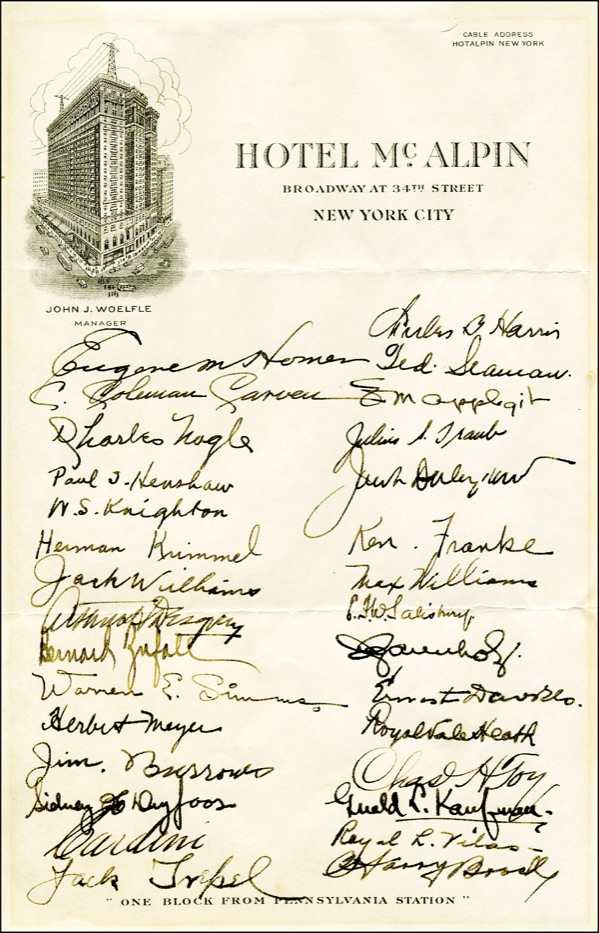 CABLE ADDRESS
HOTALPIN NEW YORK
HOTEL McALPIN
BROADWAY AT 34TH STREET
NEW YORK CITY
JOHN J. WOELFLE
MANAGER
Eugene M Homer
C. Coleman
Charles Nagle
Paul J. Henshaw
W. S. Knighton
Herman Krimmel
Jack Williams
Bernard Zufall
Warren E. Simms
Herbert Meyer
Jim. Burrows
Sidney
Cardini
Jack Trepel
Charles B Harris
Ted. Seaman.
Julius S. Traub
Ken. Franke
Max Williams
Salisbury.
Ernest Davids.
Royal Vale Heath
Chas H Joy
Gerald L. Kaufman.
Royal L. Vilas
Harry
" ONE BLOCK FROM PENNSYLVANIA STATION "